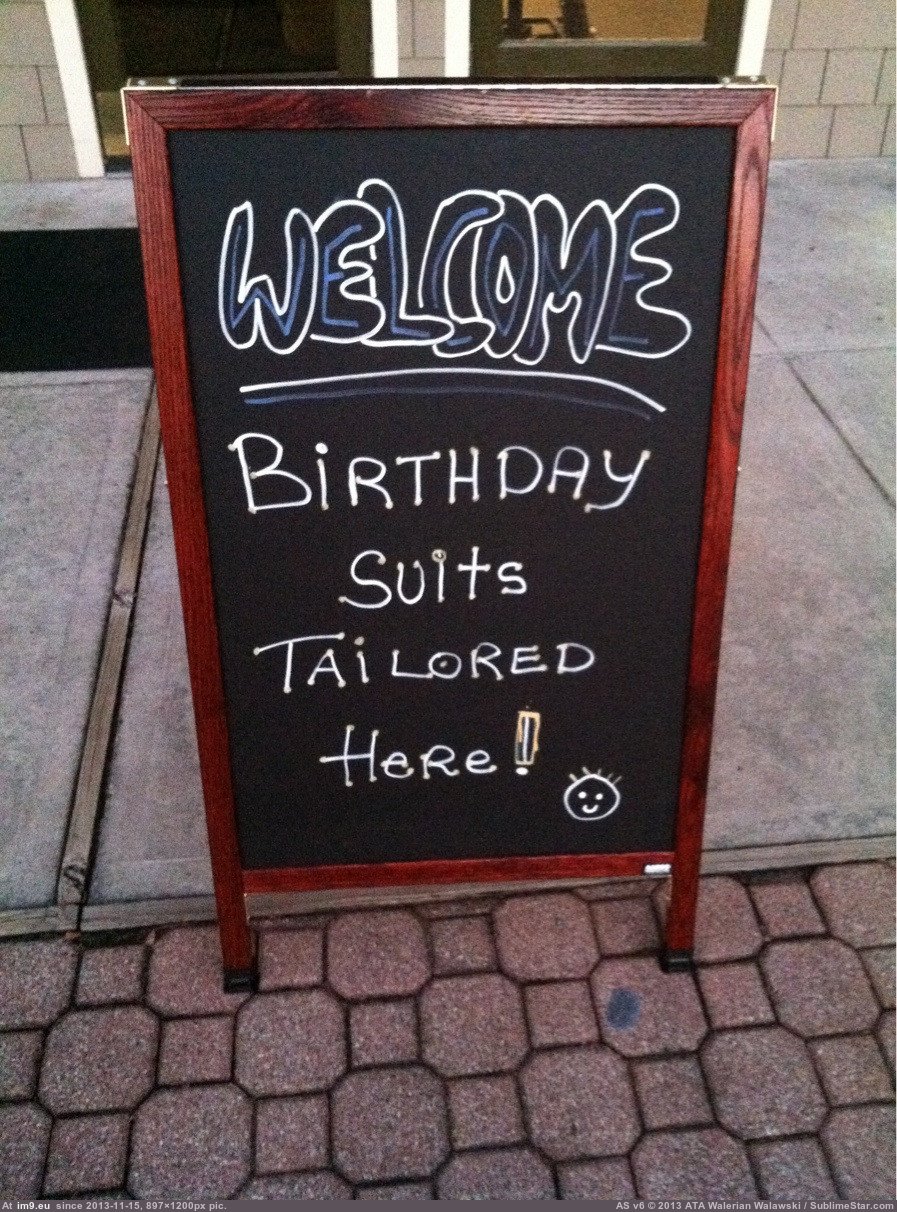 WELCOME
BiRTHDAY
Suits
TAiLORED
HeRe!
At im9.eu since 2013-11-15, 897×1200px pic.
AS v6 © 2013 ATA Walerian Walawski / SublimeStar.com